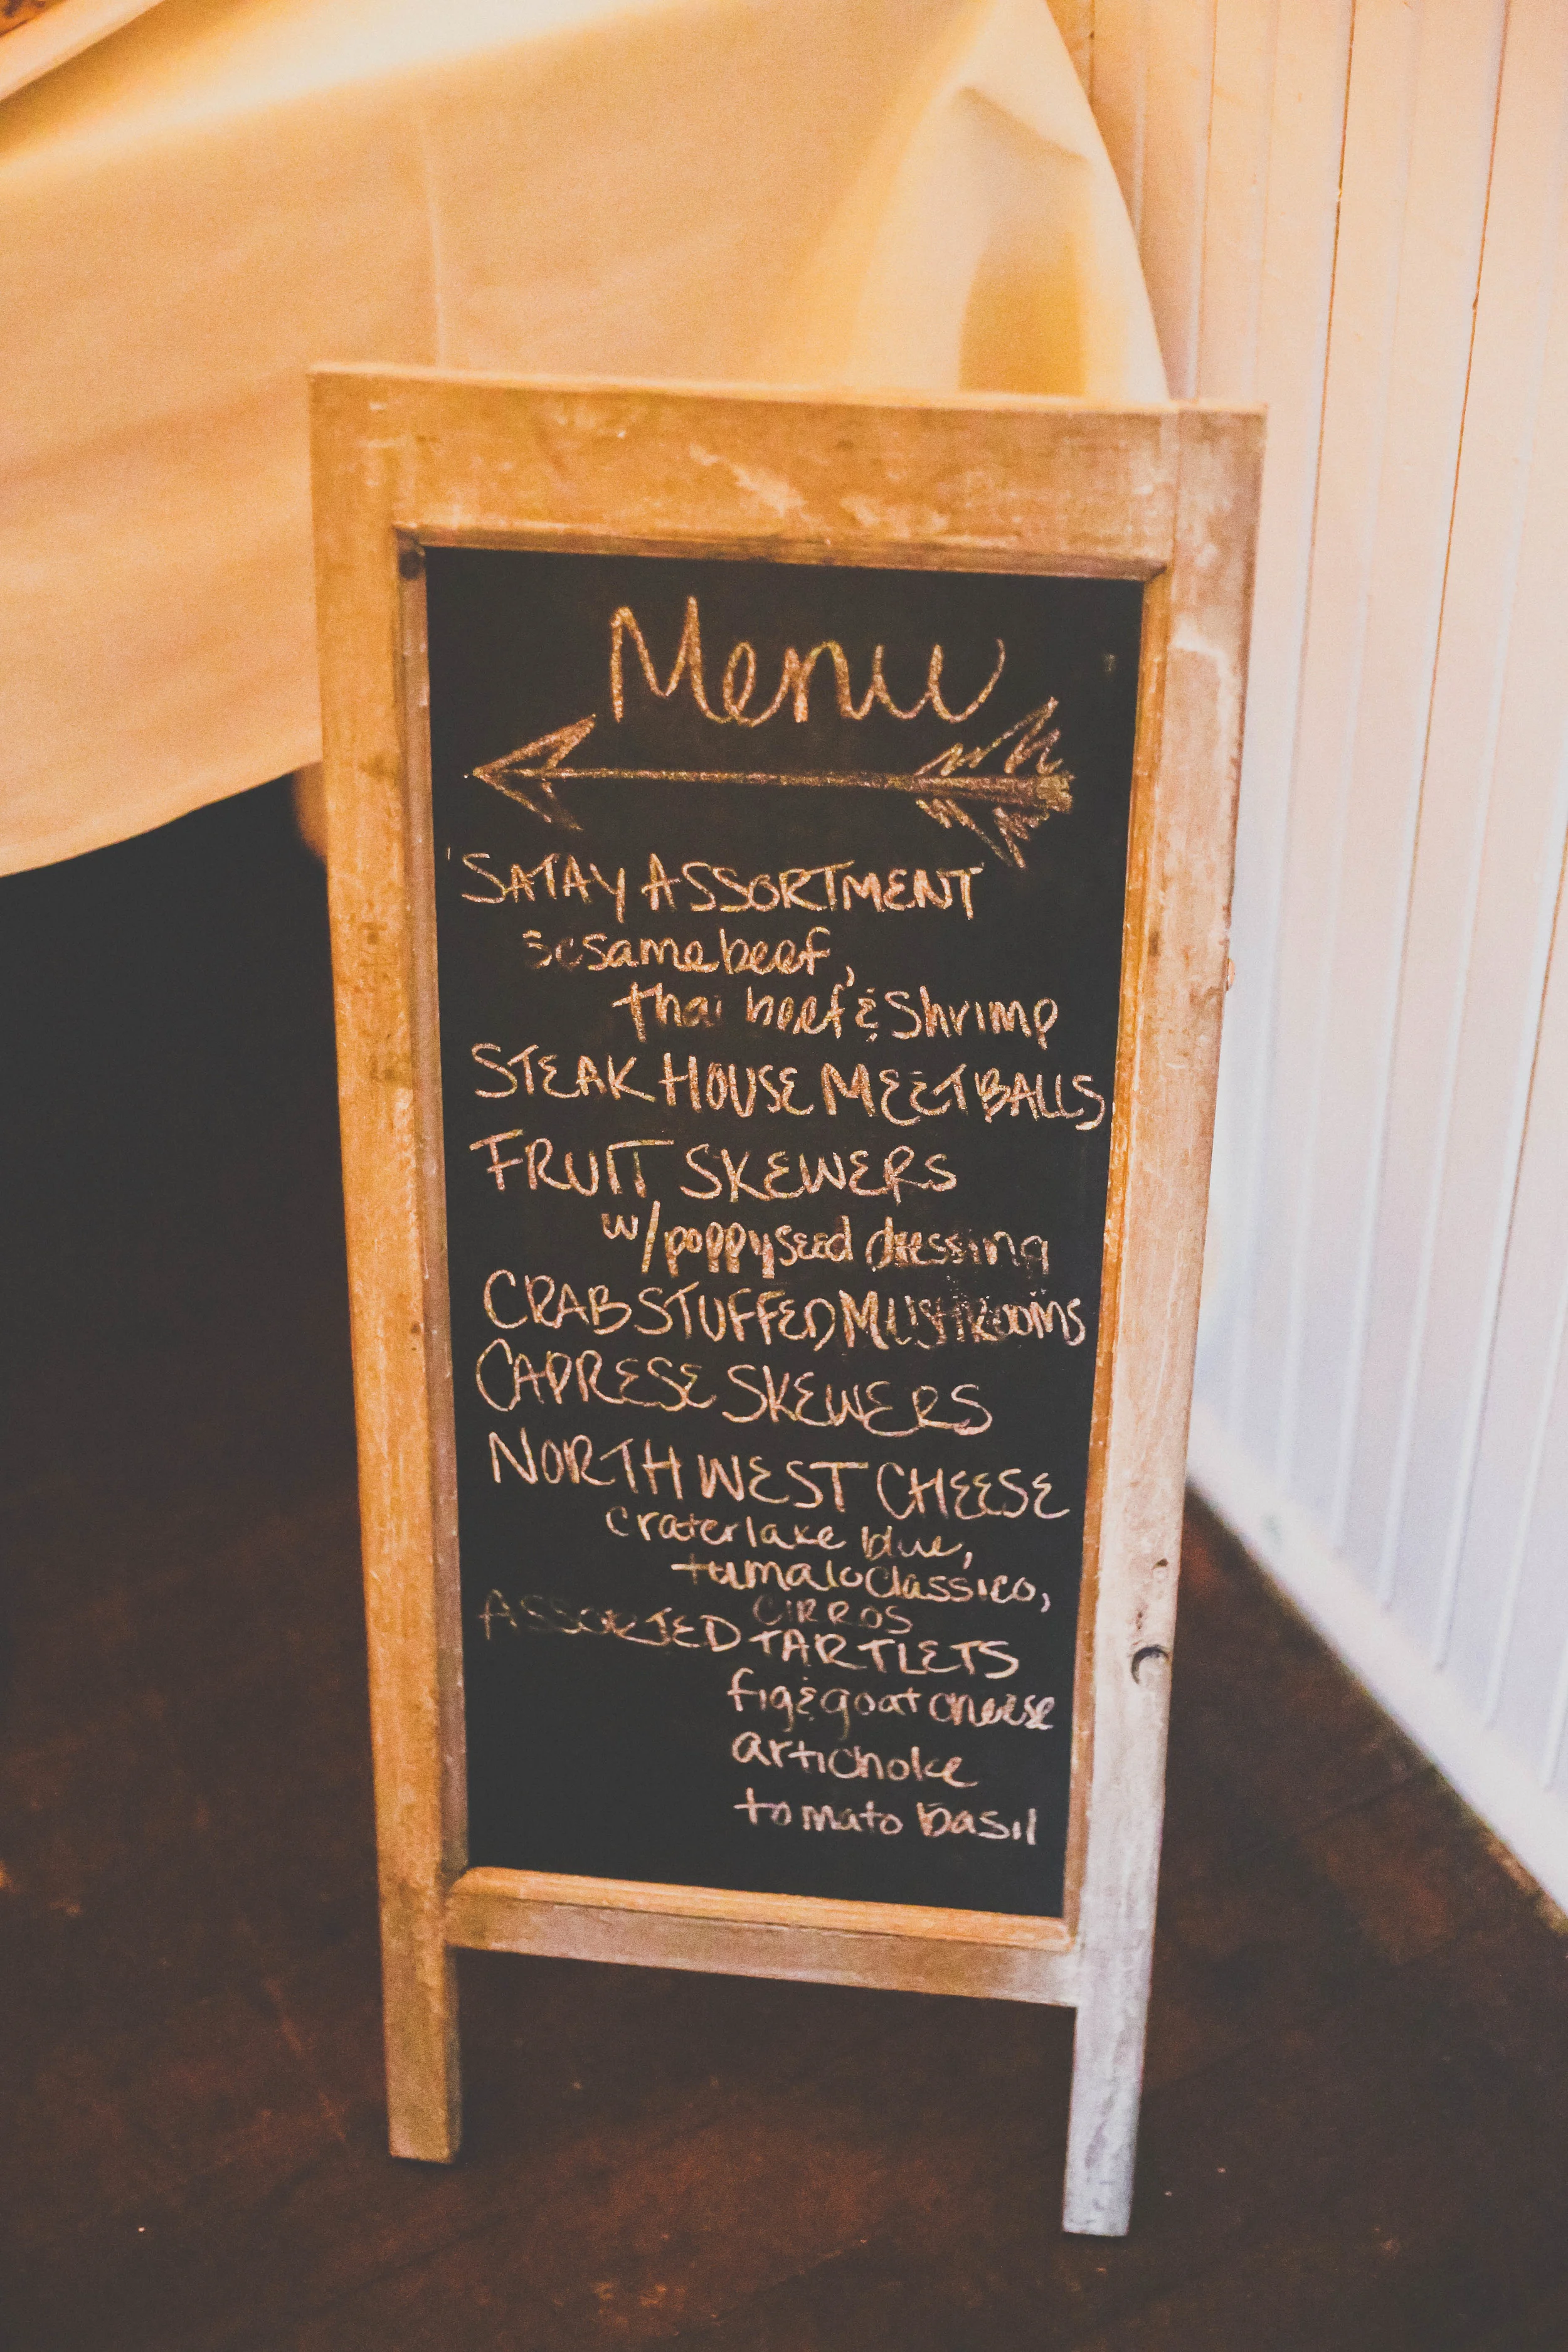 Menu
SATAY ASSORTMENT
sesame beef,
thai beef & Shrimp
STEAK HOUSE MEETBALLS
FRUIT SKEWERS
w/ poppyseed dressing
CRAB STUFFED MUSHROOMS
CAPRESE SKEWERS
NORTH WEST CHEESE
craterlake blue,
tumalo classico,
CIRROS
ASSORTED TARTLETS
fig & goat cheese
artichoke
tomato basil